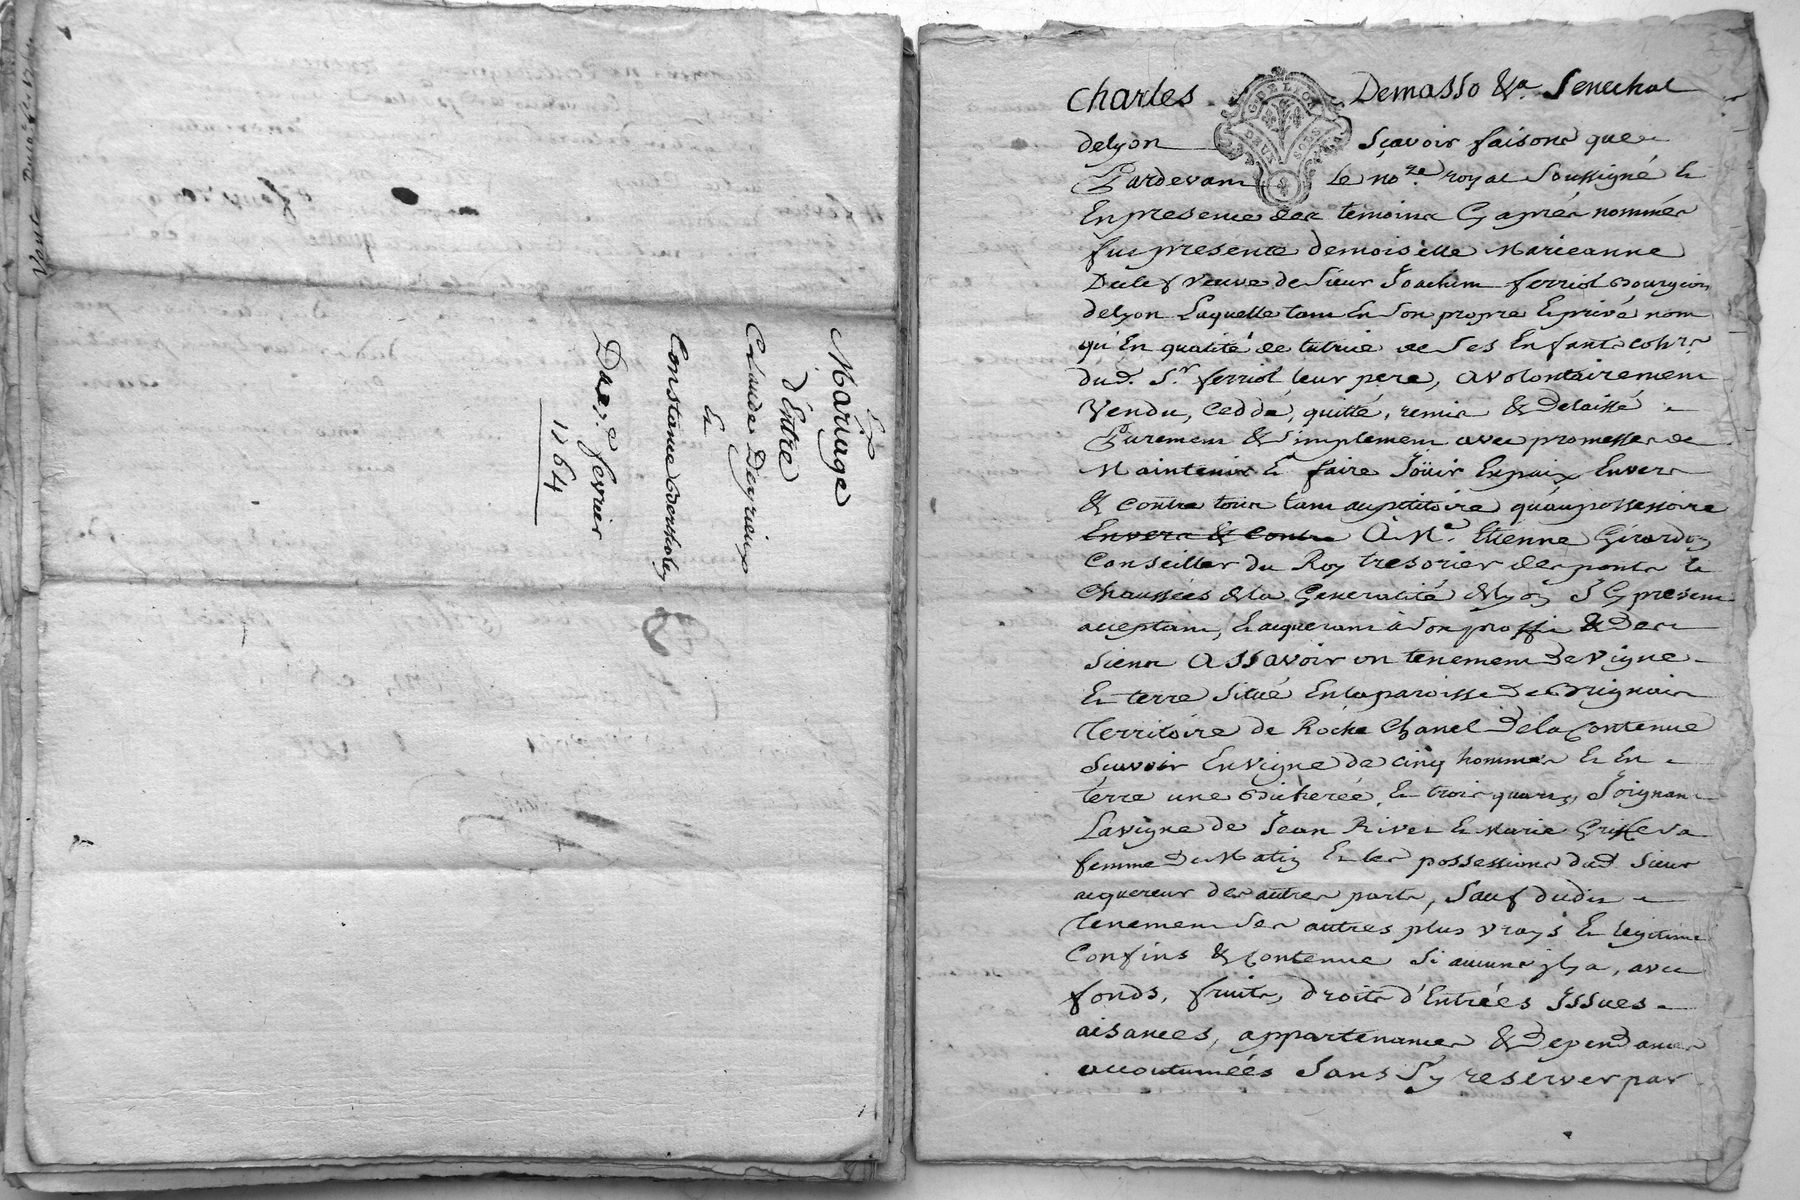 Mariage
d'Entre
Claude Deyrieux
Et
Constance Bertholey
Du 2.e fevrier
1764
Charles Demasso &a. Senechal
delyon Sçavoir faisons que
Pardevant Le no.re royal Soussigné Et
En presence des temoins Cy aprés nommés
fut presente demoiselle Marieanne
veuve de Sieur Joachim ferriol Bourgeois
delyon Laquelle tant En Son propre Et privé nom
qu'En qualité de tutrice de Ses Enfants
dud. S.r ferriol leur pere, a volontairement
Vendu, Ceddé, quitté, remis & delaissé
Purement & Simplement avec promesse de
Maintenir Et faire Jöüir En paix Envers
& contre tous tant au petitoire qu'au possessoire
Envers & Contre A M.e Etienne Girardon
Conseiller du Roy tresorier des ponts Et
Chaussées de la Generalité de lyon J Cy present
acceptant, Et acquerant à Son proffit & Des
Siens ASSavoir un tenement De vigne
Et terre Situé En la paroisse De Brignais
Territoire de Roche Chanel De la Contenue
Scavoir En vigne de cinq hommes Et En
terre une Bicherée, Et trois quarts, Joignant
La vigne de Jean Rivet Et Marie
femme De Matis Et les possessions dud. Sieur
acquereur des autres parts, Sauf dudit
tenement Ses autres plus vrays Et legitimes
Confins & Contenue Si aucuns y a, avec
fonds, fruits, droits d'Entrées JSSues
aisances, appartenances & Dependances
accoutumées Sans S'y reserver par
G. DE LION
DEUX SOLS